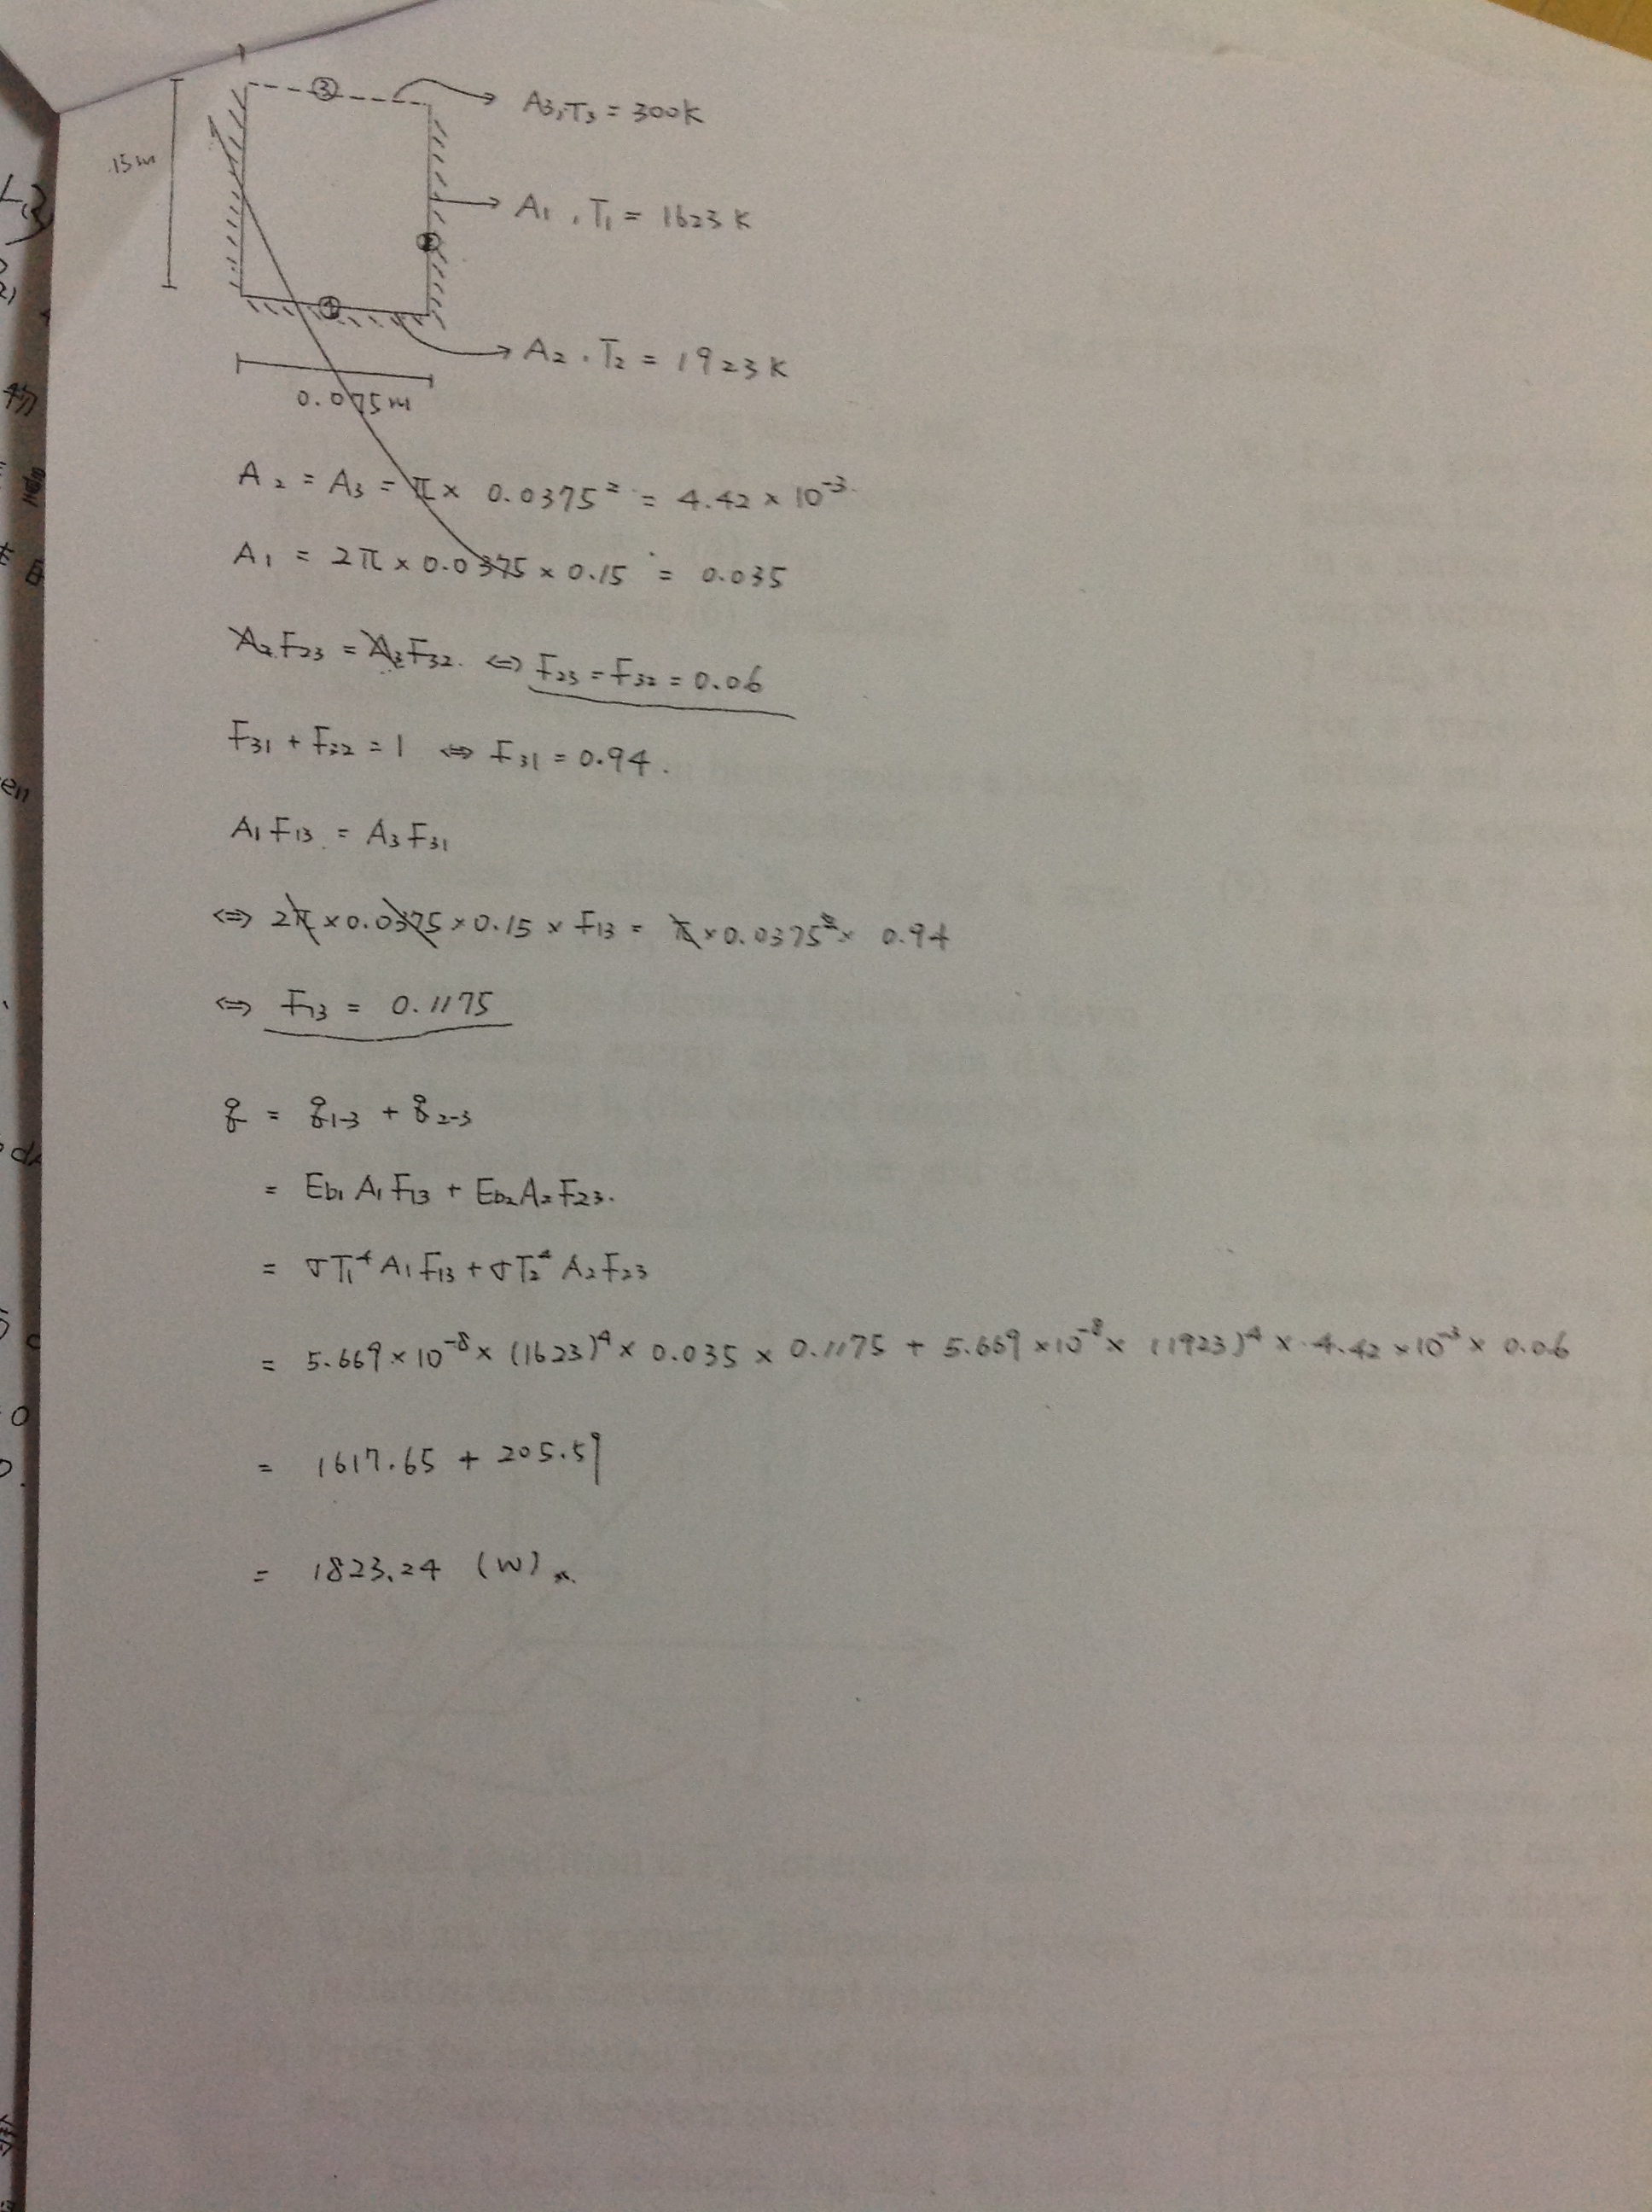 ③
A₃, T₃ = 300K
.15m
A₁, T₁ = 1623K
A₂, T₂ = 1923K
0.075m
A₂ = A₃ = π × 0.0375² = 4.42 × 10⁻³
A₁ = 2π × 0.0375 × 0.15 = 0.035
A₂F₂₃ = A₃F₃₂. ⇔ F₂₃ = F₃₂ = 0.06
F₃₁ + F₃₂ = 1 ⇔ F₃₁ = 0.94.
A₁F₁₃ = A₃F₃₁
⇔ 2π × 0.0375 × 0.15 × F₁₃ = π × 0.0375² × 0.94
⇔ F₁₃ = 0.1175
q = q₁₋₃ + q₂₋₃
= Eb₁A₁F₁₃ + Eb₂A₂F₂₃.
= σT₁⁴A₁F₁₃ + σT₂⁴A₂F₂₃
= 5.669 × 10⁻⁸ × (1623)⁴ × 0.035 × 0.1175 + 5.669 × 10⁻⁸ × (1923)⁴ × 4.42 × 10⁻³ × 0.06
= 1617.65 + 205.59
= 1823.24 (W)